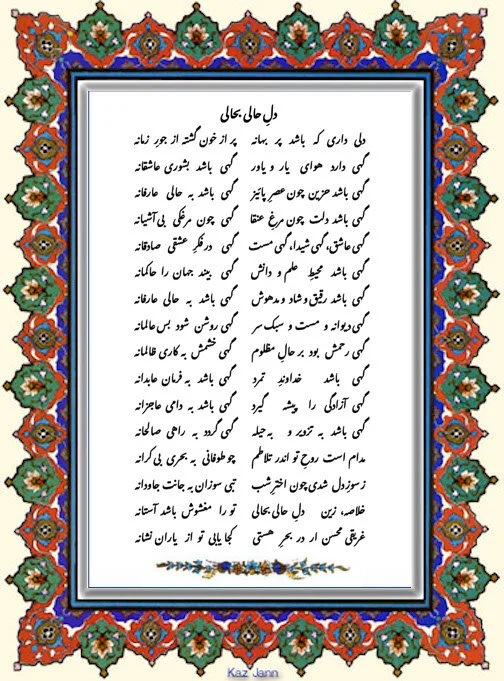 دلِ حالی بحالی
دلی داری که باشد پر بهانه پر از خون گشته از جورِ زمانه
گهی دارد هوای یار و یاور گهی باشد بشوری عاشقانه
گهی باشد حزین چون عصرِ پائیز گهی باشد به حالی عارفانه
گهی باشد دلت چون مرغِ عنقا گهی چون مرغکی بی آشیانه
گهی عاشق، گهی شیدا، گهی مست گهی در فکرِ عشقی صادقانه
گهی باشد محیطِ علم و دانش گهی بیند جهان را حاکمانه
گهی باشد رقیق و شاد و مدهوش گهی باشد به حالی عارفانه
گهی دیوانه و مست و سبک سر گهی روشن شود بس عالمانه
گهی رحمش بود بر حالِ مظلوم گهی خشمش به کاری ظالمانه
گهی باشد خداوندِ تمرد گهی باشد به فرمان عابدانه
گهی آزادگی را پیشه گیرد گهی باشد به دامی عاجزانه
گهی باشد به تزویر و به حیله گهی گردد به راهی صالحانه
مدام است روحِ تو اندر تلاطم چو طوفانی به بحری بی کرانه
ز سوزِ دل شدی چون اخترِ شب تبی سوزان به جانت جاودانه
خلاصه، زین دلِ حالی بحالی تو را مغشوش باشد آستانه
غریقی محسن ار در بحرِ هستی کجا یابی تو از یاران نشانه
Kaz Jann